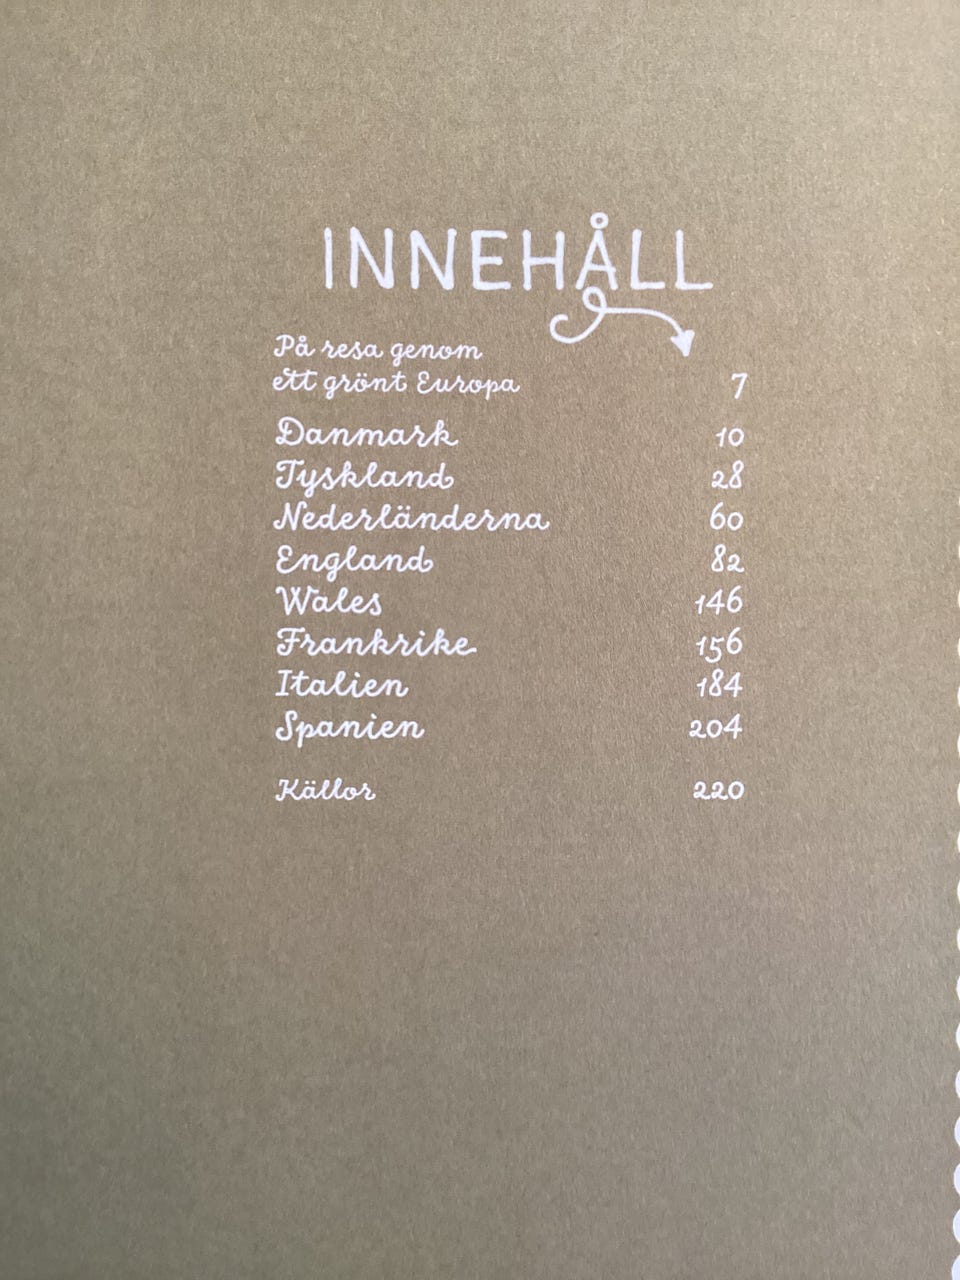 INNEHÅLL
På resa genom
ett grönt Europa 7
Danmark 10
Tyskland 28
Nederländerna 60
England 82
Wales 146
Frankrike 156
Italien 184
Spanien 204
Källor 220